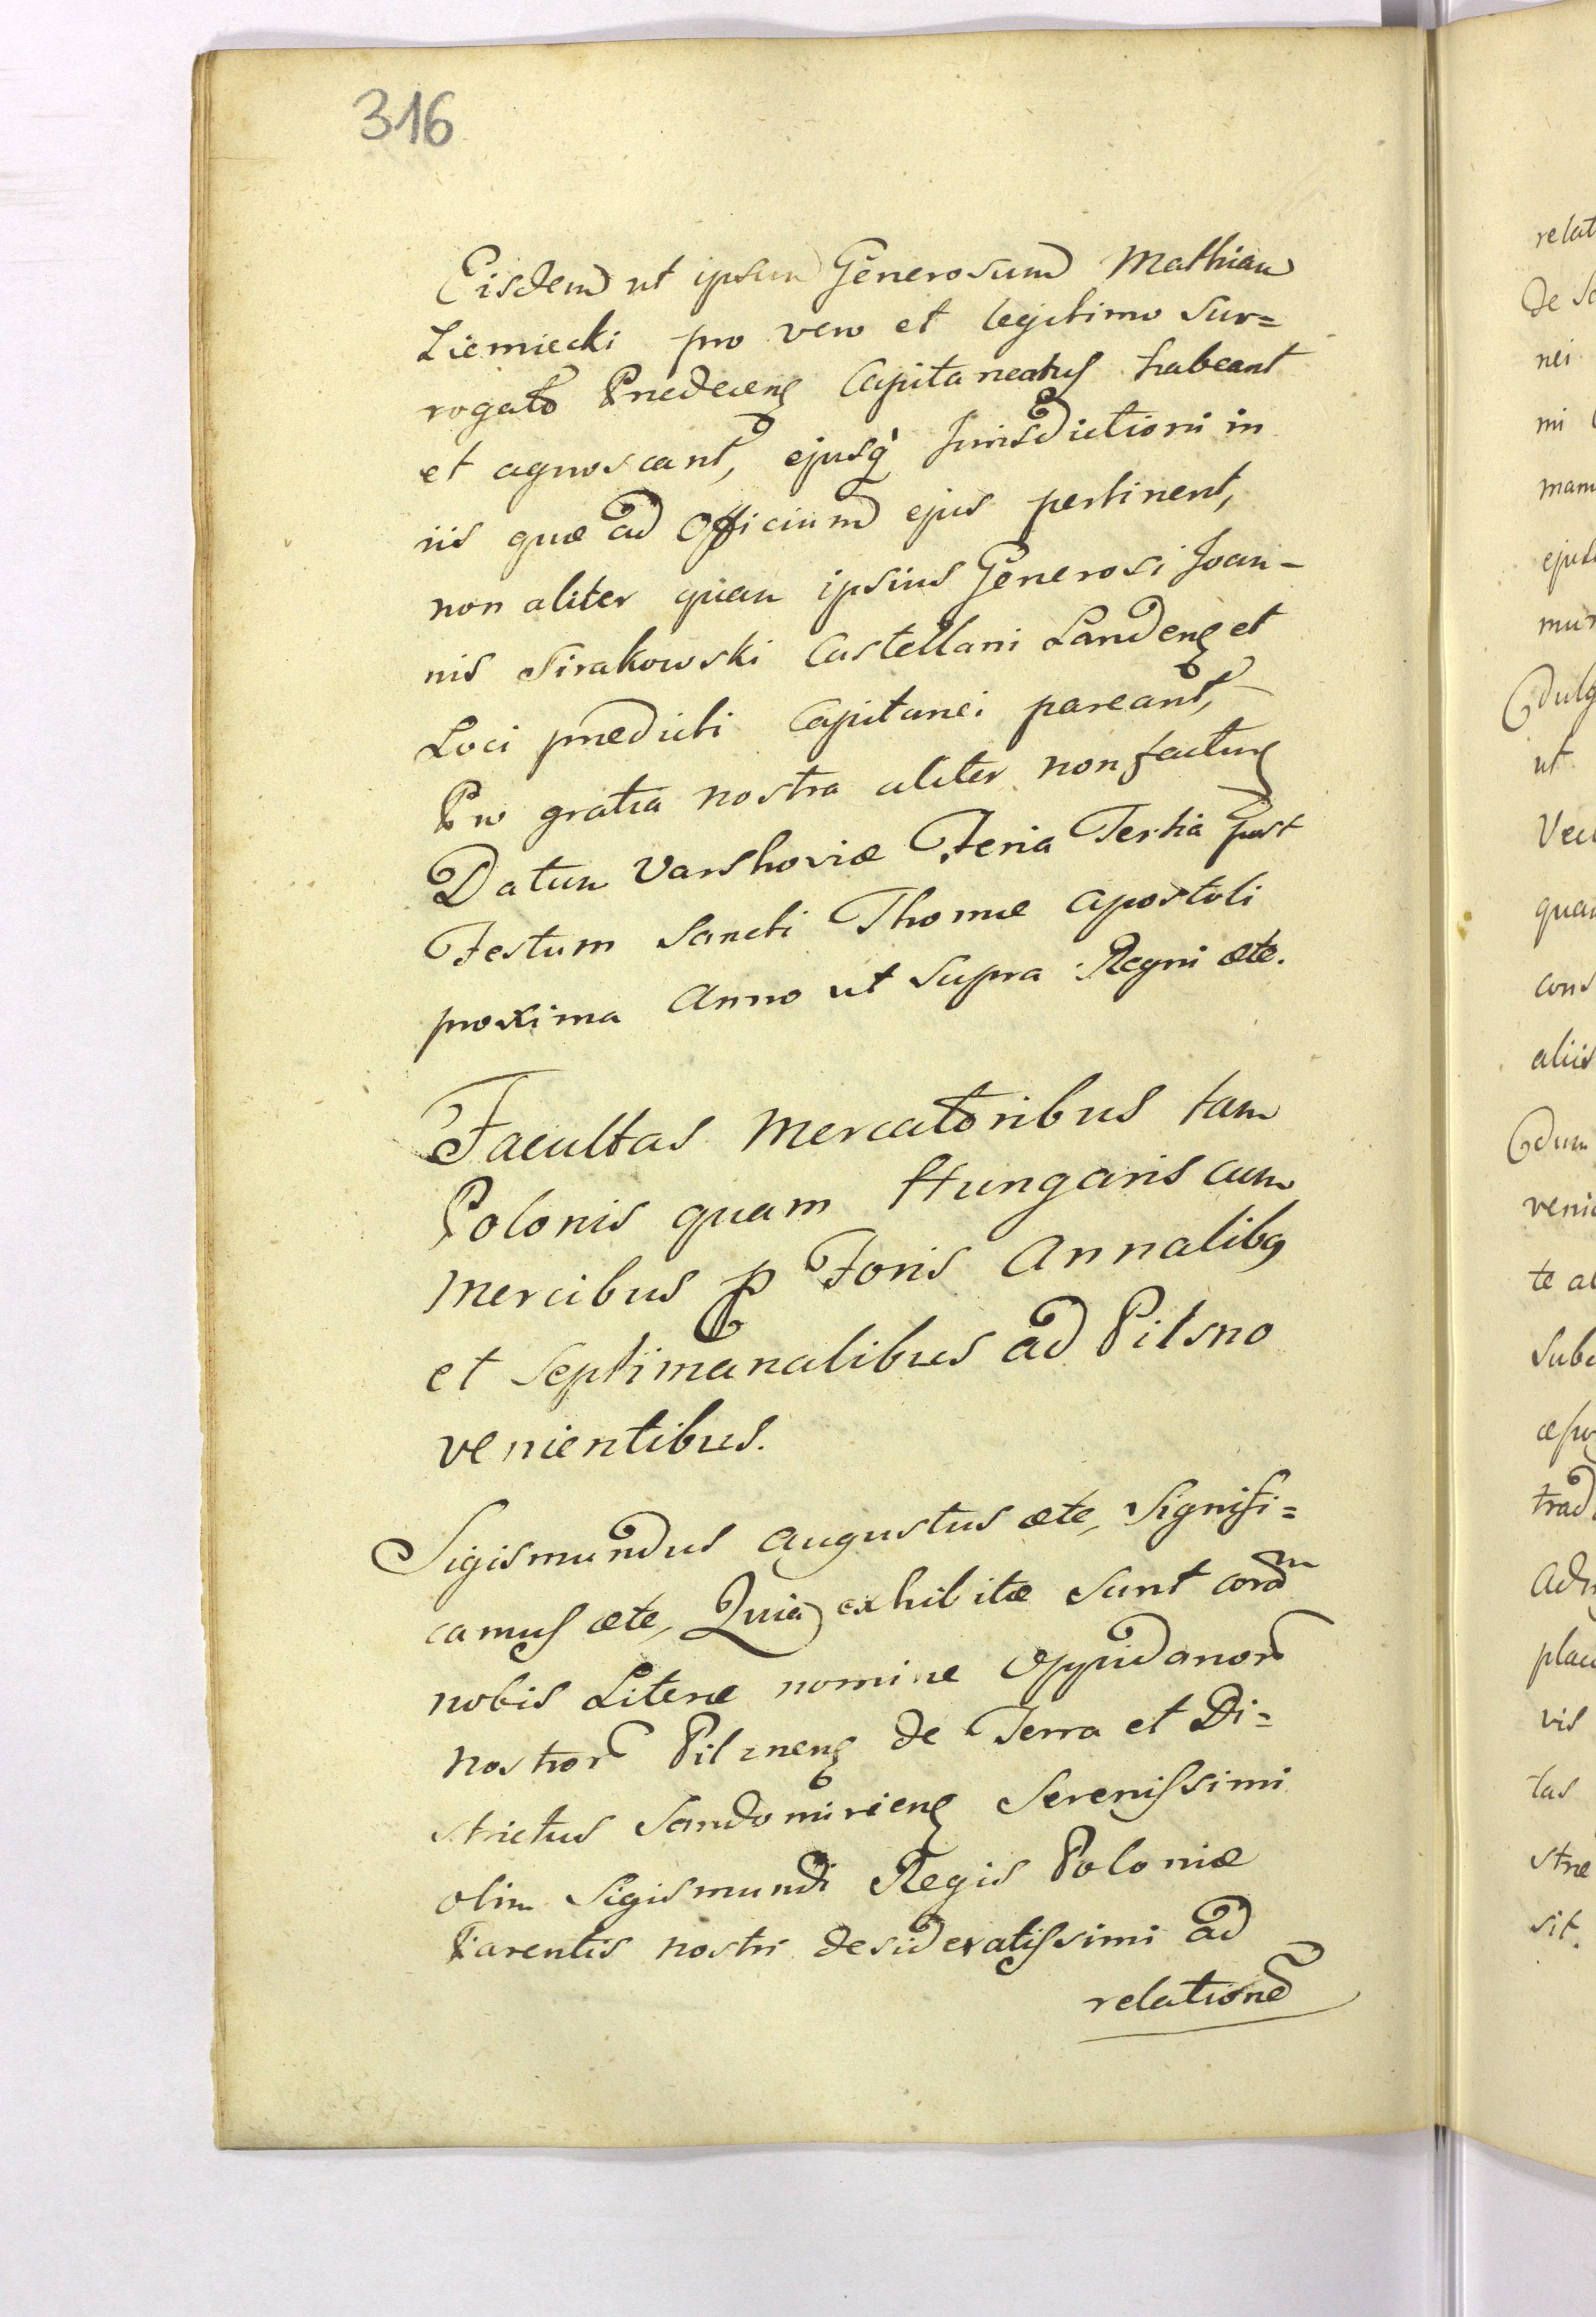 316
Eisdem ut ipsum Generosum Mathiam
Ziemiecki pro vero et legitimo Sur=
rogato Prædecenʒ Capitaneatus habeant
et agnoscant, ejusq̀ Jurisdictioni in
iis quæ ad Officium ejus pertinent,
non aliter quam ipsius Generosi Joan-
nis Sirakowski Castellani Landenʒ et
Loci prædicti Capitanei pareant,
Pro gratia nostra aliter non facturʒ
Datum Varshoviæ Feria Tertia post
Festum Sancti Thomæ Apostoli
proxima Anno ut Supra Regni æte.
Facultas Mercatoribus tam
Polonis quam Hungaris cum
Mercibus p Foris Annalibꝫ
et Septimanalibus ad Pilsno
venientibus.
Sigismundus Augustus æte, Signifi=
camus æte, Quia exhibitæ Sunt coram
nobis Literæ nomine Oppidanor
Nostror Pilznenʒ de Terra et Di=
strictus Sandomirienʒ Serenissimi
olim Sigismundi Regis Poloniæ
Parentis nostri desideratissimi ad
relatione
relat
de Sc
nei
mi
mam
ejus
mur
dulg
ut
Vec
quam
cons
aliis
dum
veni
te al
Sub
trad
Adm
plac
vis
tas
stræ
sit.